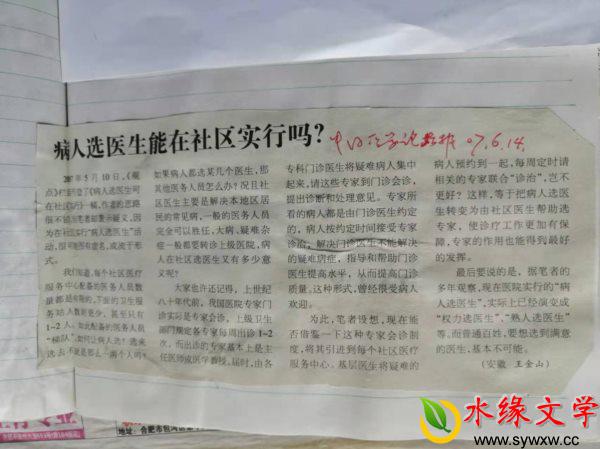 病人选医生能在社区实行吗?
07.6.14
年5月10日,《观
点》栏
《病人选医生可
在社区
一稿,作者的思路
很不
为在社区实行“病人选医生”活
动,很
或流于形
式。
每个社区医疗
服务中心配备的医务人员
数量都是有限的,下面的卫生服
务站人数则更少,甚至只有
1~2人。如此配备的医务人员
“梯队”,如何让病人选?选来
选去不就是那么一两个人吗?
如果病人都选某几个医生,那
其他医务人员怎么办?况且社
区医生主要是解决本地区居
民的常见病,一般的医务人员
完全可以胜任,大病、疑难杂
症一般都要转诊上级医院,病
人在社区选医生又有多少意
义?
大家也许还记得,上世纪
八十年代前,我国医院专家门
诊实行是专家会诊,上级卫生
部门规定各专家每周出诊1~2
次,而出诊的专家基本上是主
任医师或医学教授。届时,由各
专科门诊医生将疑难病人集中
起来,请这些专家到门诊会诊,
提出诊断和处理意见。专家所
看的病人都是由门诊医生约定
的,病人按约定时间接受专家
诊治,解决门诊医生不能解决
的疑难病症,指导和帮助门诊
医生提高水平,从而提高门诊
质量。这种形式,曾经很受病人
欢迎。
为此,笔者设想,现在能
否借鉴一下这种专家会诊制
度,将其引进到每个社区医疗
服务中心。基层医生将疑难的
病人预约到一起,每周定时请
相关的专家联合“诊治”,岂不
更好?这样,等于把病人选医
生转变为由社区医生帮助选
专家,使诊疗工作更加有保
障,专家的作用也能得到最好
的发挥。
最后要说的是,据笔者的
多年观察,现在医院实行的“病
人选医生”,实际上已经演变成
“权力选医生”、“熟人选医生”
等,而普通百姓,要想选到满意
的医生,基本不可能。
(安徽 王金山)
地址:合肥市包河
水缘文学
www.sywxw.cc